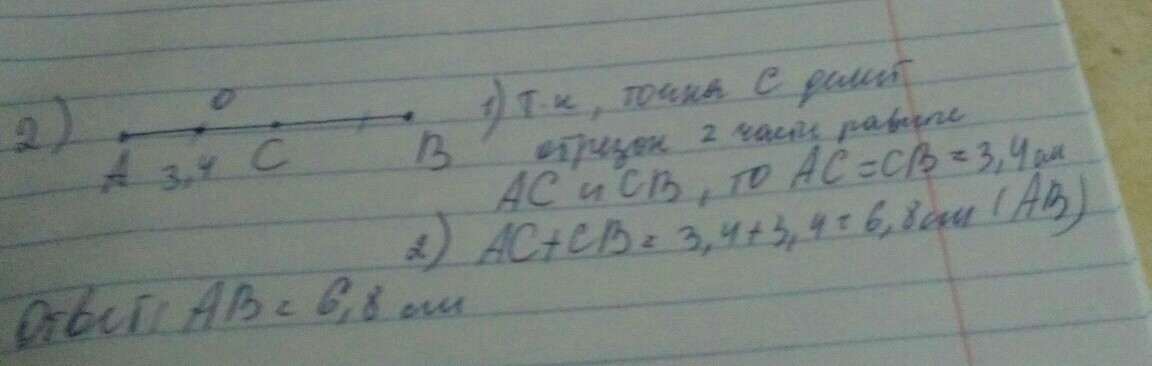 2)
O
A 3,4 C B
1) Т.к, точка C делит
отрезок 2 части равные
AC и CB, то AC = CB = 3,4 см
2) AC + CB = 3,4 + 3,4 = 6,8 см (AB)
Ответ: AB = 6,8 см